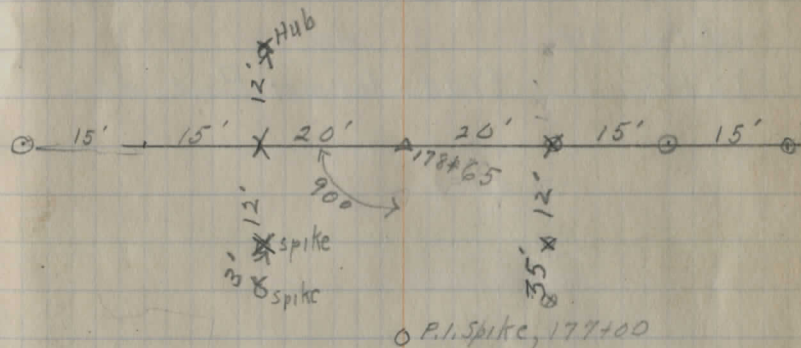 Hub
12'
15' 15' 20' 20' 15' 15'
178+65
90°
12' 12'
spike
3' 35'
spike
P.I. Spike, 177+00